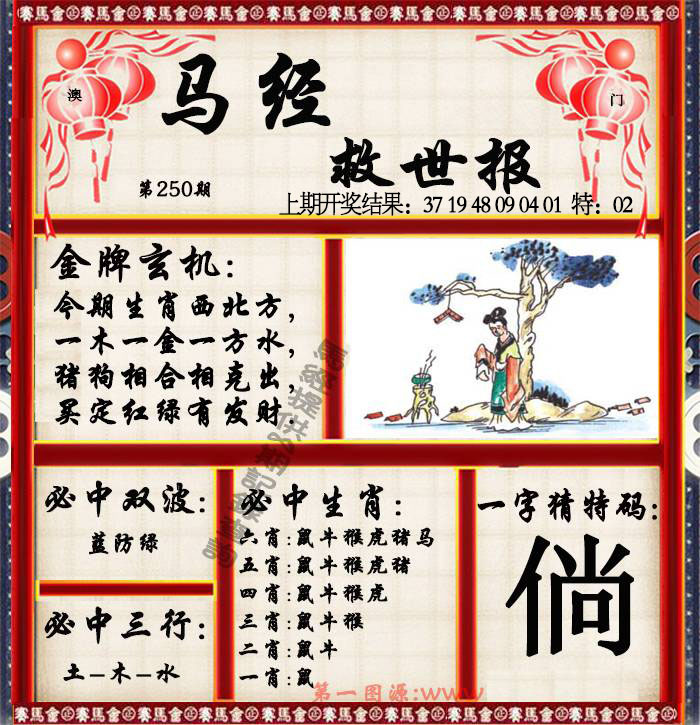 賽馬會正賽馬會正賽馬會正賽馬會正賽馬會正賽馬會正賽馬會正賽馬會正
澳
门
马经
救世报
第250期
上期开奖结果：37 19 48 09 04 01 特：02
金牌玄机：
今期生肖西北方，
一木一金一方水，
猪狗相合相克出，
买定红绿有发财.
必中双波：
蓝防绿
必中三行：
土–木–水
必中生肖：
六肖：鼠牛猴虎猪马
五肖：鼠牛猴虎猪
四肖：鼠牛猴虎
三肖：鼠牛猴
二肖：鼠牛
一肖：鼠
一字猜特码：
倘
第一图源：www